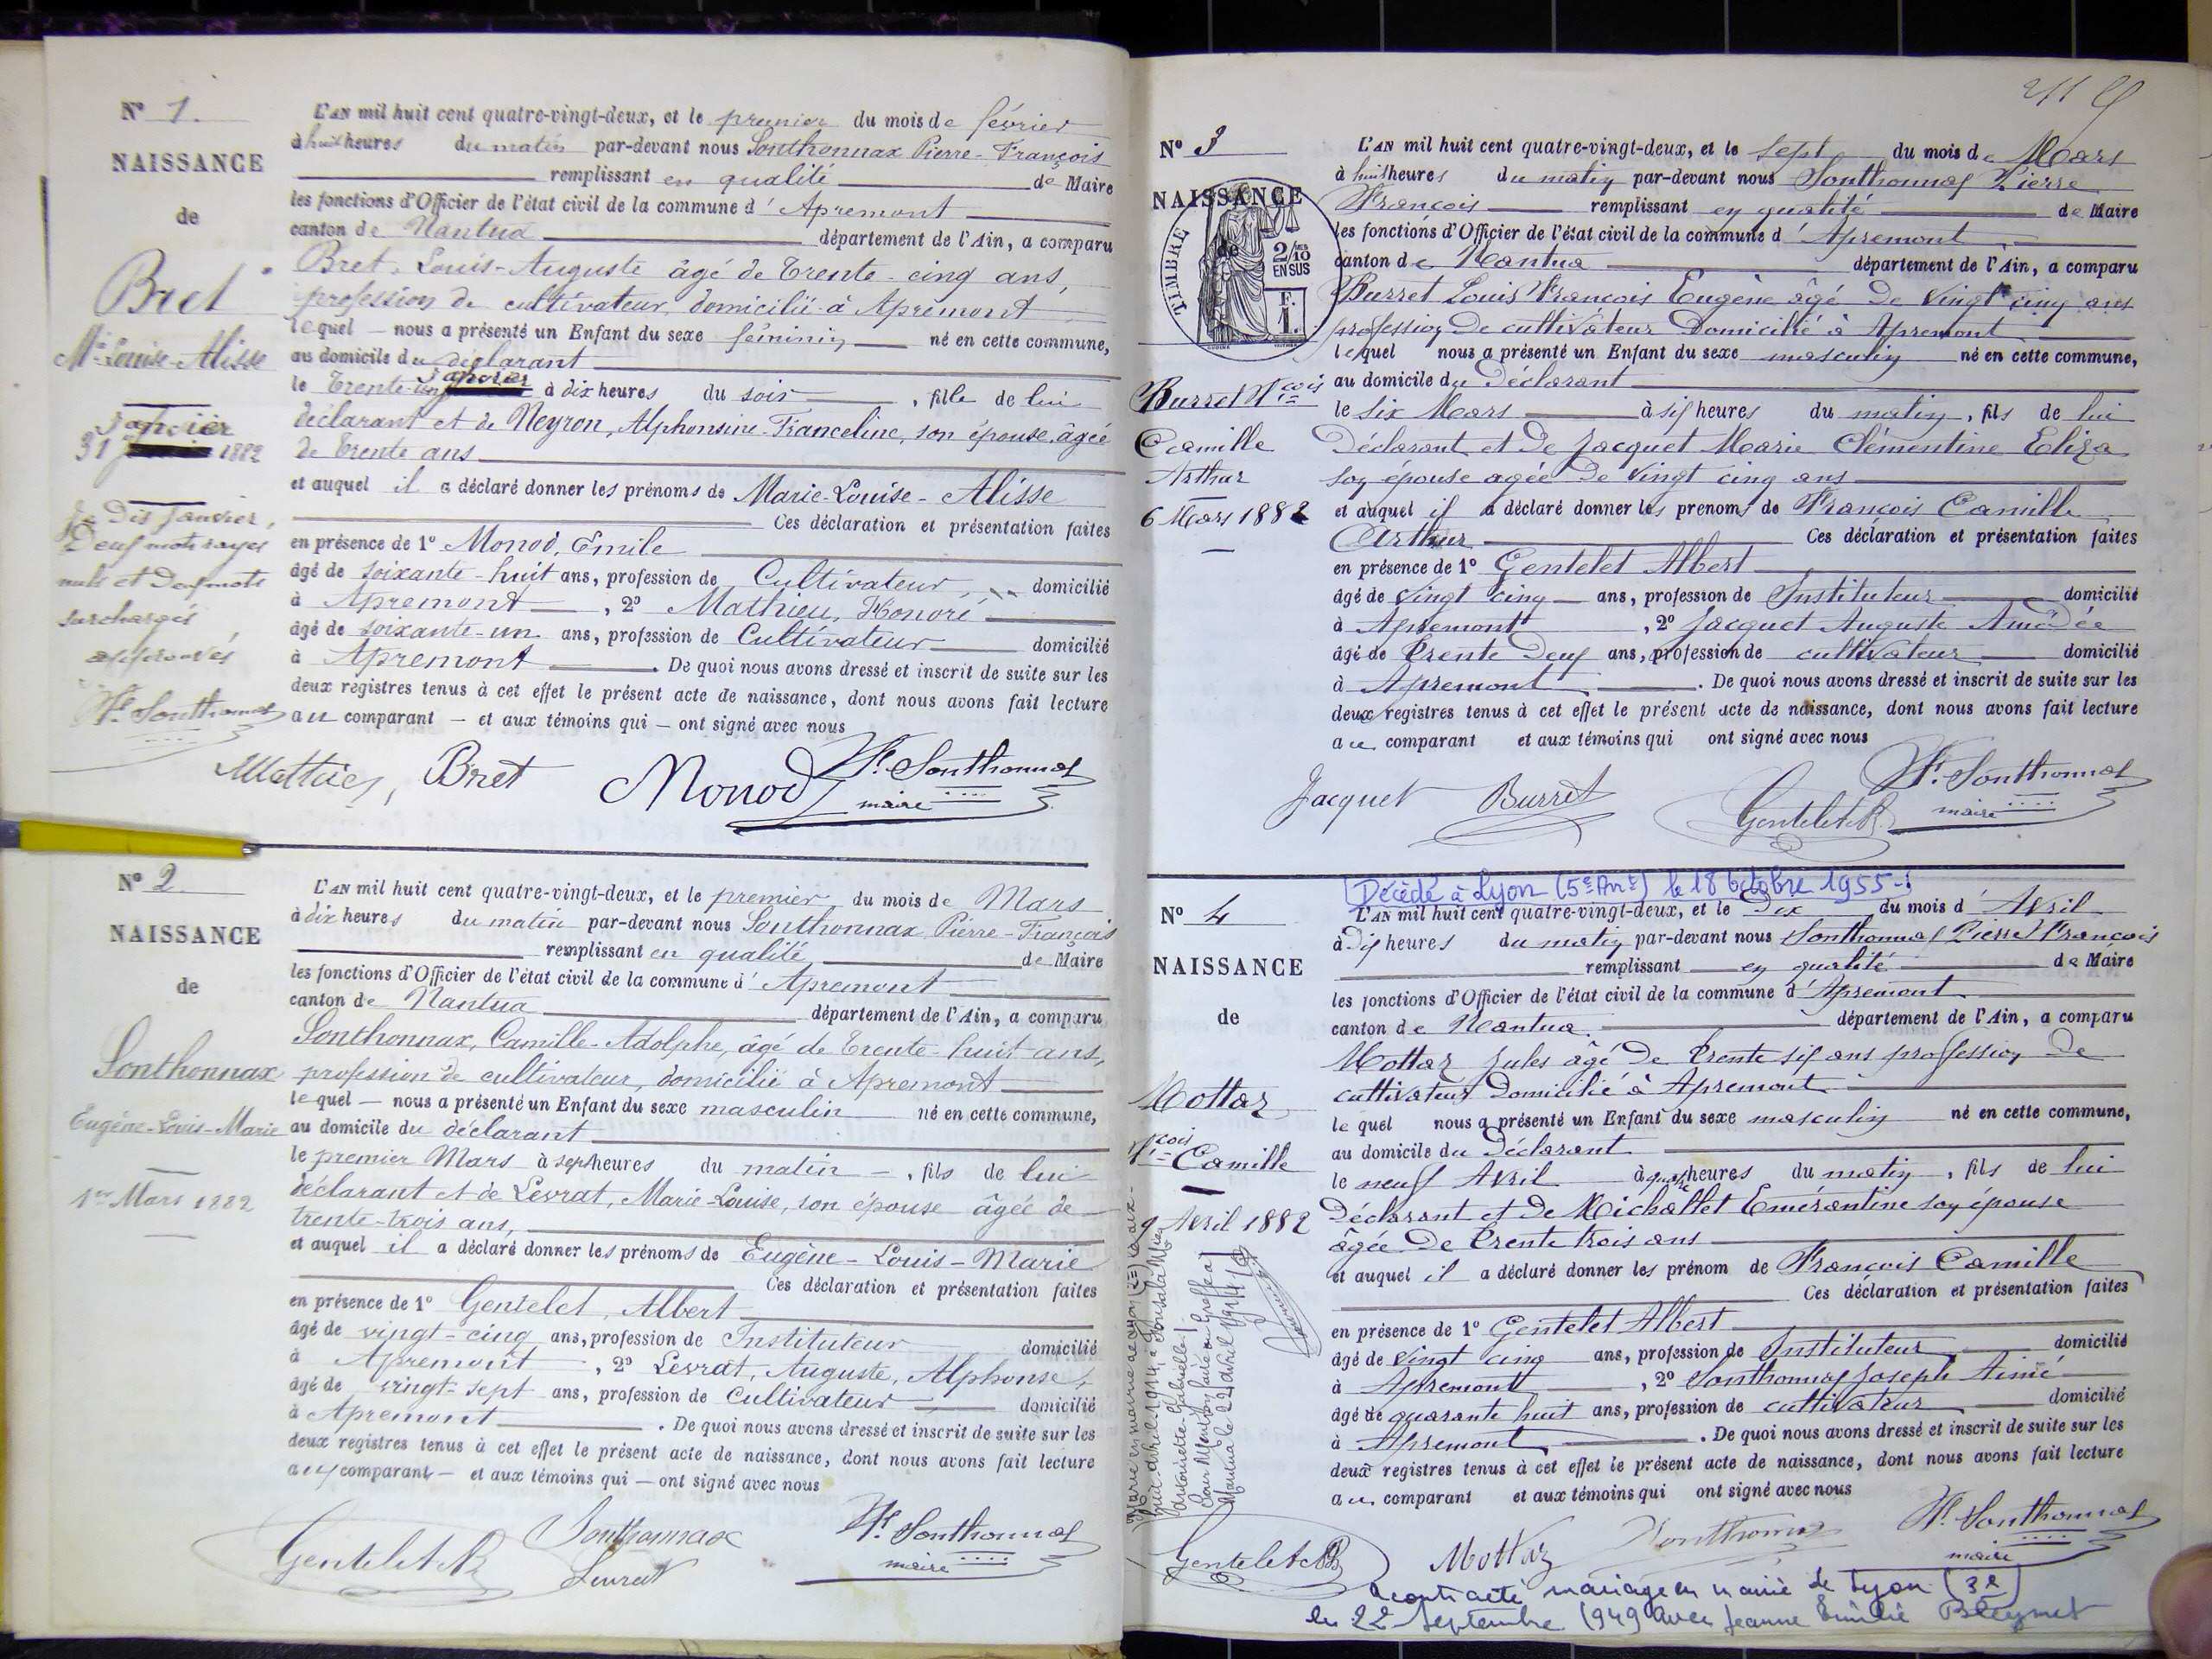 N° 1.
NAISSANCE
de
Bret
Mie Louise-Alisse
Janvier
31 1882
Je dis janvier,
Deux mots rayés
nuls et Deux mots
surchargés
approuvés
Fs. Sonthonnax
L'AN mil huit cent quatre-vingt-deux, et le premier du mois de février
à huit heures du matin par-devant nous Sonthonnax Pierre-François
remplissant en qualité de Maire
les fonctions d'Officier de l'état civil de la commune d' Apremont
canton de Nantua département de l'Ain, a comparu
Bret, Louis-Auguste âgé de trente-cinq ans,
profession de cultivateur, domicilié à Apremont
lequel — nous a présenté un Enfant du sexe féminin né en cette commune,
au domicile du déclarant
le trente-un janvier à dix heures du soir, fille de lui
déclarant et de Neyron, Alphonsine-Franceline, son épouse, âgée
de trente ans
et auquel il a déclaré donner les prénoms de Marie-Louise-Alisse
Ces déclaration et présentation faites
en présence de 1° Monod, Emile
âgé de soixante-huit ans, profession de Cultivateur domicilié
à Apremont, 2° Mathieu, Honoré
âgé de soixante-un ans, profession de Cultivateur domicilié
à Apremont. De quoi nous avons dressé et inscrit de suite sur les
deux registres tenus à cet effet le présent acte de naissance, dont nous avons fait lecture
au comparant — et aux témoins qui — ont signé avec nous
Mathieu, Bret Monod Fs. Sonthonnax
maire
N° 2
NAISSANCE
de
Sonthonnax
Eugène-Louis-Marie
1er Mars 1882
L'AN mil huit cent quatre-vingt-deux, et le premier du mois de Mars
à dix heures du matin par-devant nous Sonthonnax Pierre-François
remplissant en qualité de Maire
les fonctions d'Officier de l'état civil de la commune d' Apremont
canton de Nantua département de l'Ain, a comparu
Sonthonnax, Camille-Adolphe, âgé de trente-huit ans,
profession de cultivateur, domicilié à Apremont
lequel — nous a présenté un Enfant du sexe masculin né en cette commune,
au domicile du déclarant
le premier Mars à sept heures du matin —, fils de lui
déclarant et de Levrat, Marie-Louise, son épouse âgée de
trente-trois ans,
et auquel il a déclaré donner les prénoms de Eugène-Louis-Marie
Ces déclaration et présentation faites
en présence de 1° Gentelet, Albert
âgé de vingt-cinq ans, profession de Instituteur domicilié
à Apremont, 2° Levrat, Auguste, Alphonse,
âgé de vingt-sept ans, profession de Cultivateur domicilié
à Apremont. De quoi nous avons dressé et inscrit de suite sur les
deux registres tenus à cet effet le présent acte de naissance, dont nous avons fait lecture
au comparant — et aux témoins qui — ont signé avec nous
Gentelet A. Sonthonnax Levrat Fs. Sonthonnax
maire
N° 3
NAISSANCE
de
TIMBRE
2/10
EN SUS
F.
1.
Burret Fçois
Camille
Arthur
6 Mars 1882
L'AN mil huit cent quatre-vingt-deux, et le sept du mois de Mars
à huit heures du matin par-devant nous Sonthonnax Pierre
François remplissant en qualité de Maire
les fonctions d'Officier de l'état civil de la commune d' Apremont
canton de Nantua département de l'Ain, a comparu
Burret Louis François Eugène âgé de vingt cinq ans
profession de cultivateur domicilié à Apremont
lequel nous a présenté un Enfant du sexe masculin né en cette commune,
au domicile du Déclarant
le six Mars à six heures du matin, fils de lui
Déclarant et de Jacquet Marie Clémentine Eliza
son épouse agée de vingt cinq ans
et auquel il a déclaré donner les prenoms de François Camille
Arthur Ces déclaration et présentation faites
en présence de 1° Gentelet Albert
âgé de vingt cinq ans, profession de Instituteur domicilié
à Apremont, 2° Jacquet Auguste Amédée
âgé de trente Deux ans, profession de cultivateur domicilié
à Apremont. De quoi nous avons dressé et inscrit de suite sur les
deux registres tenus à cet effet le présent acte de naissance, dont nous avons fait lecture
au comparant et aux témoins qui ont signé avec nous
Jacquet Burret Gentelet A. Fs. Sonthonnax
maire
Décédé à Lyon (5e Arrt) le 18 octobre 1955
N° 4
NAISSANCE
de
Mottaz
Fçois Camille
9 Avril 1882
L'AN mil huit cent quatre-vingt-deux, et le Dix du mois d' Avril
à Dix heures du matin par-devant nous Sonthonnax Pierre François
remplissant en qualité de Maire
les fonctions d'Officier de l'état civil de la commune d' Apremont
canton de Nantua département de l'Ain, a comparu
Mottaz Jules âgé de trente six ans profession de
cultivateur domicilié à Apremont
lequel nous a présenté un Enfant du sexe masculin né en cette commune,
au domicile du Déclarant
le neuf Avril à quatre heures du matin, fils de lui
Déclarant et de Michallet Emérantine son épouse
âgée de trente trois ans
et auquel il a déclaré donner les prénom de François Camille
Ces déclaration et présentation faites
en présence de 1° Gentelet Albert
âgé de vingt cinq ans, profession de Instituteur domicilié
à Apremont, 2° Sonthonnax Joseph Aimé
âgé de quarante huit ans, profession de cultivateur domicilié
à Apremont. De quoi nous avons dressé et inscrit de suite sur les
deux registres tenus à cet effet le présent acte de naissance, dont nous avons fait lecture
au comparant et aux témoins qui ont signé avec nous
Gentelet A. Mottaz Sonthonnax Fs. Sonthonnax
maire
Marié en mairie de Lyon
avril 1914, à
Antoinette Gabrielle.
Pour Mention faite au Greffe à
Nantua le 22 avril 1914
a contracté mariage en mairie de Lyon (3e)
le 22 Septembre 1949 avec Jeanne Emilie Bleynet